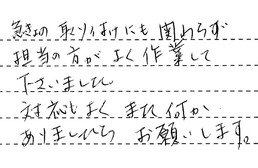 急きょの取り付けにも関わらず
担当の方がよく作業して
下さいました
対応もよくまた何か
ありましたら お願いします。